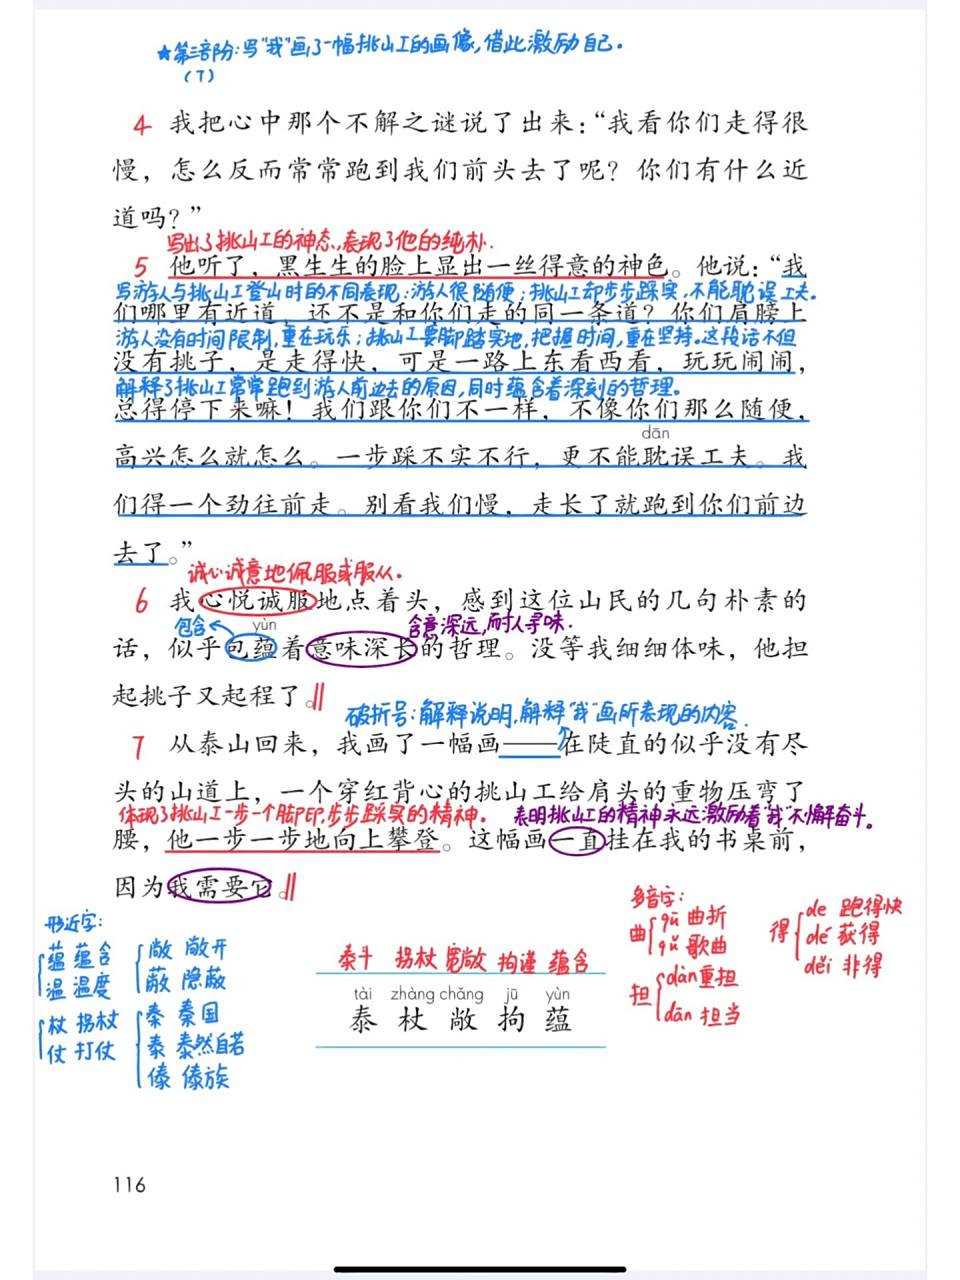 ★第三部分:写“我”画了一幅挑山工的画像,借此激励自己。
(7)
4 我把心中那个不解之谜说了出来:“我看你们走得很
慢，怎么反而常常跑到我们前头去了呢？你们有什么近
道吗？”
写出了挑山工的神态,表现了他的纯朴.
5 他听了，黑生生的脸上显出一丝得意的神色。他说:“我
写游人与挑山工登山时的不同表现:游人很随便;挑山工却步步踩实,不能耽误工夫。
们哪里有近道，还不是和你们走的同一条道？你们肩膀上
游人没有时间限制,重在玩乐;挑山工要脚踏实地,把握时间,重在坚持。这段话不但
没有挑子，是走得快，可是一路上东看西看，玩玩闹闹，
解释了挑山工常常跑到游人前边去的原因,同时蕴含着深刻的哲理。
总得停下来嘛！我们跟你们不一样，不像你们那么随便，
dān
高兴怎么就怎么。一步踩不实不行，更不能耽误工夫。我
们得一个劲往前走。别看我们慢，走长了就跑到你们前边
去了。”
诚心诚意地佩服或服从.
6 我心悦诚服地点着头，感到这位山民的几句朴素的
包含 yùn 含意深远,耐人寻味.
话，似乎包蕴着意味深长的哲理。没等我细细体味，他担
起挑子又起程了。
破折号:解释说明,解释“我”画所表现的内容.
7 从泰山回来，我画了一幅画——在陡直的似乎没有尽
头的山道上，一个穿红背心的挑山工给肩头的重物压弯了
体现了挑山工一步一个脚印,步步踩实的精神。 表明挑山工的精神永远激励着“我”不懈奋斗。
腰，他一步一步地向上攀登。这幅画一直挂在我的书桌前，
因为我需要它。
形近字:
蕴 蕴含
温 温度
杖 拐杖
仗 打仗
敞 敞开
蔽 隐蔽
秦 秦国
泰 泰然自若
傣 傣族
泰斗 拐杖 宽敞 拘谨 蕴含
tài zhàng chǎng jū yùn
泰 杖 敞 拘 蕴
多音字:
曲 qū 曲折
qǔ 歌曲
担 dàn 重担
dān 担当
得 de 跑得快
dé 获得
děi 非得
116